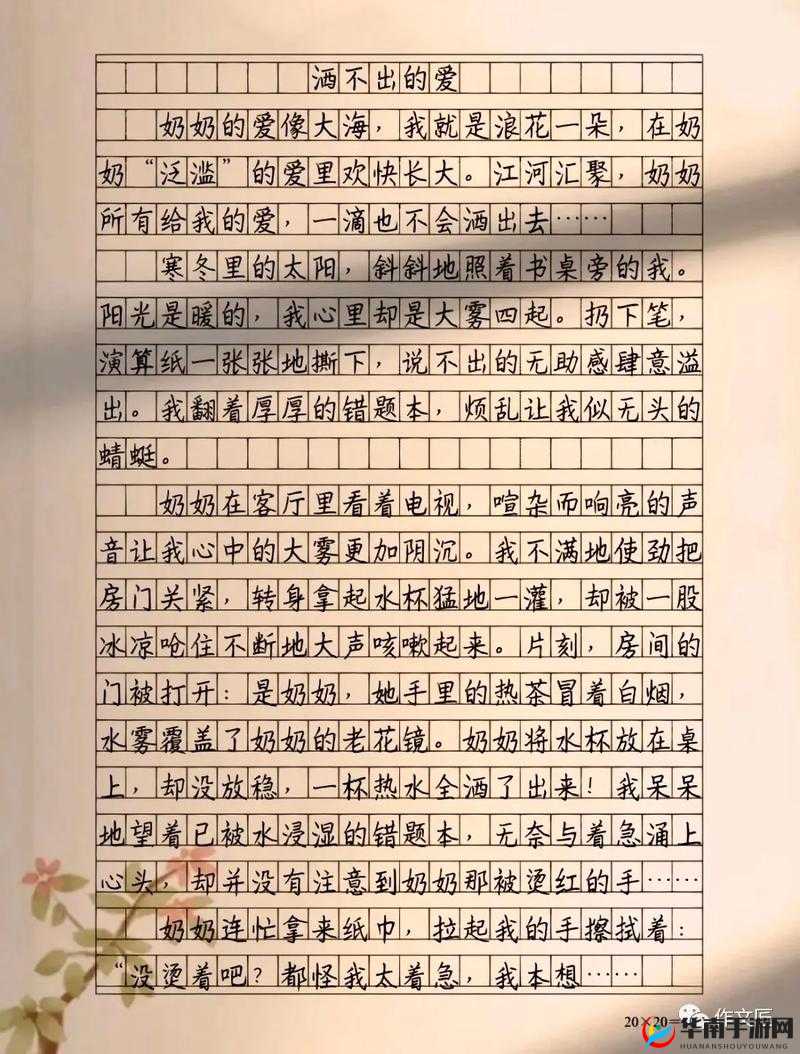 洒不出的爱
奶奶的爱像大海，我就是浪花一朵，在奶
奶“泛滥”的爱里欢快长大。江河汇聚，奶奶
所有给我的爱，一滴也不会洒出去……
寒冬里的太阳，斜斜地照着书桌旁的我。
阳光是暖的，我心里却是大雾四起。扔下笔，
演算纸一张张地撕下，说不出的无助感肆意溢
出。我翻着厚厚的错题本，烦乱让我似无头的
蜻蜓。
奶奶在客厅里看着电视，喧杂而响亮的声
音让我心中的大雾更加阴沉。我不满地使劲把
房门关紧，转身拿起水杯猛地一灌，却被一股
冰凉呛住不断地大声咳嗽起来。片刻，房间的
门被打开：是奶奶，她手里的热茶冒着白烟，
水雾覆盖了奶奶的老花镜。奶奶将水杯放在桌
上，却没放稳，一杯热水全洒了出来！我呆呆
地望着已被水浸湿的错题本，无奈与着急涌上
心头，却并没有注意到奶奶那被烫红的手……
奶奶连忙拿来纸巾，拉起我的手擦拭着：
“没烫着吧？都怪我太着急，我本想……
20×20=
作文匠
华南手游网
HUANANSHOUYOUWANG